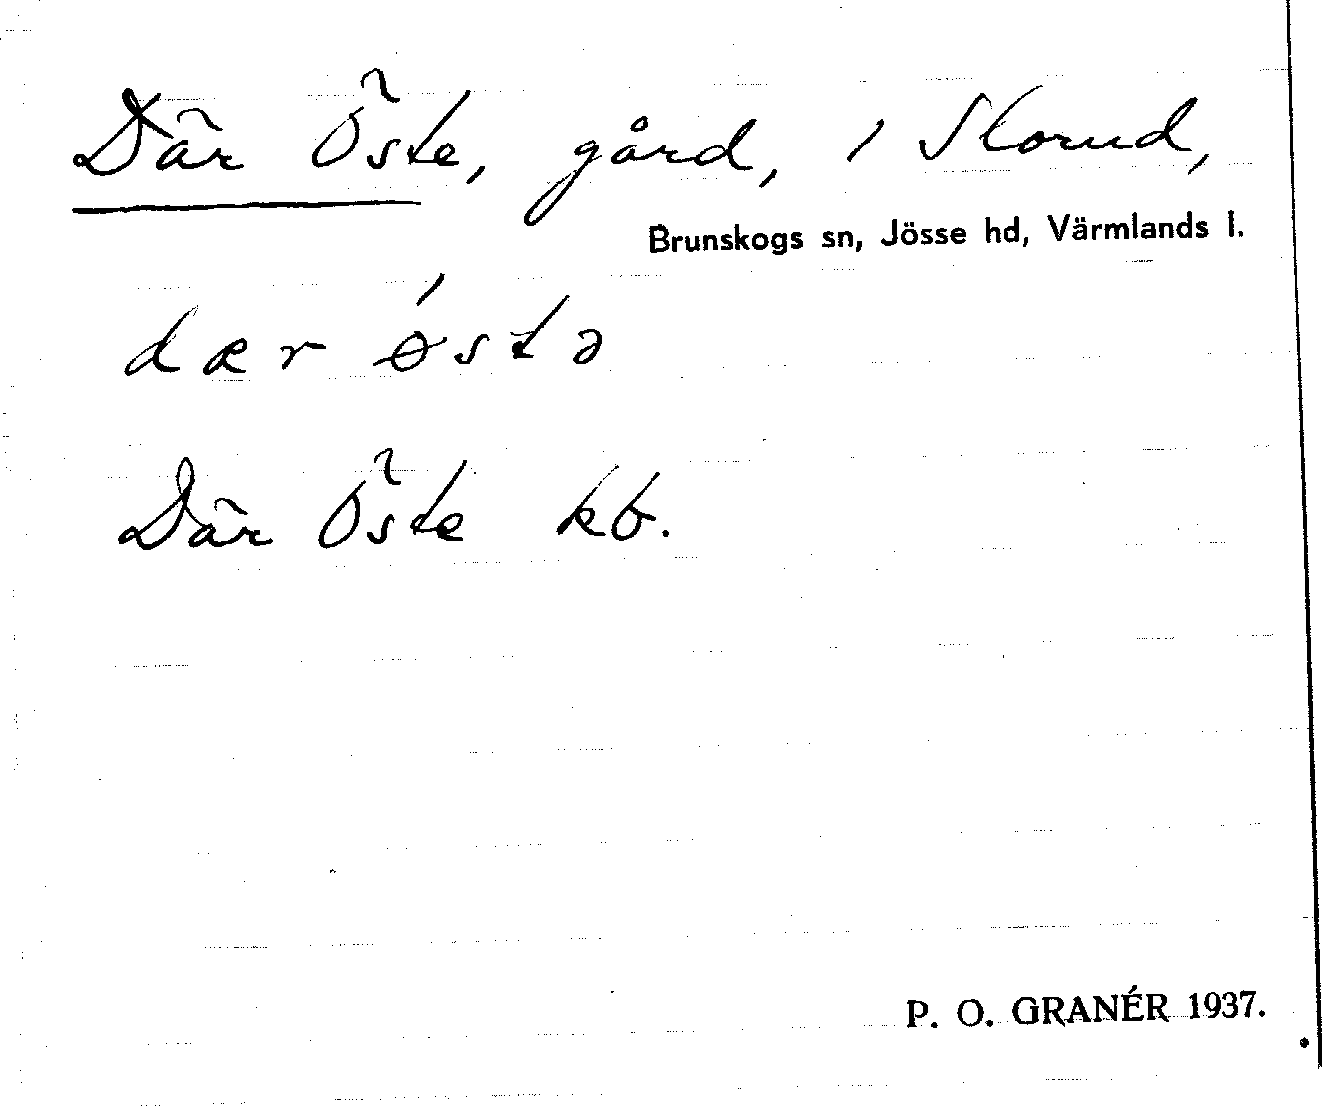 Där Öste, gård, i Skorud,
Brunskogs sn, Jösse hd, Värmlands l.
dær ǿstə
Där Öste kb.
P. O. GRANÉR 1937.